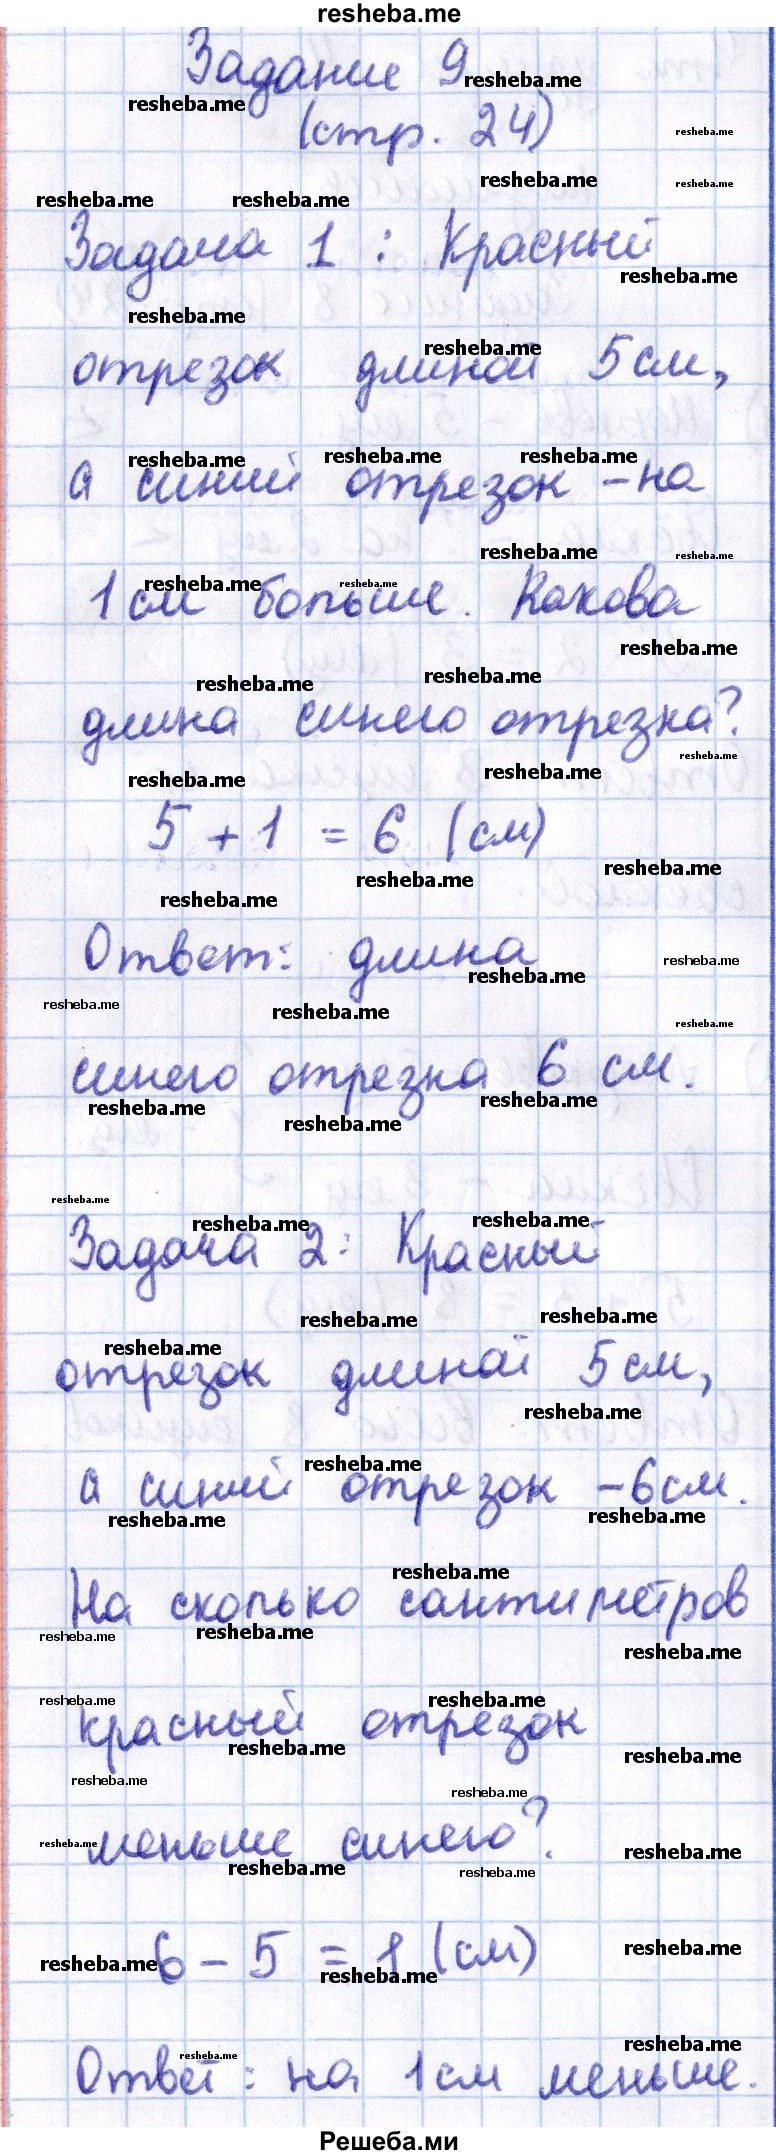 resheba.me
Задание 9
(стр. 24)
Задача 1 : Красный
отрезок длиной 5 см,
а синий отрезок – на
1 см больше. Какова
длина синего отрезка?
5 + 1 = 6 (см)
Ответ: длина
синего отрезка 6 см.
Задача 2: Красный
отрезок длиной 5 см,
а синий отрезок – 6 см.
На сколько сантиметров
красный отрезок
меньше синего?
6 – 5 = 1 (см)
Ответ: на 1 см меньше.
Решеба.ми